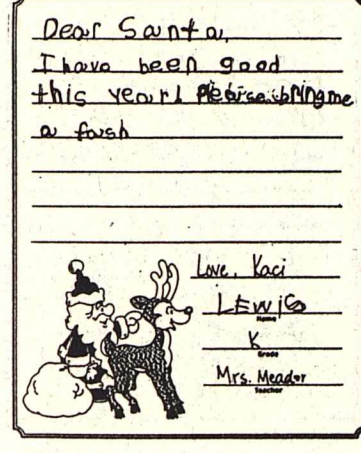 Dear Santa,
I have been good
this year! Please bring me
a fash
Love, Kaci
LEWIS
Name
K
Grade
Mrs. Meador
Teacher